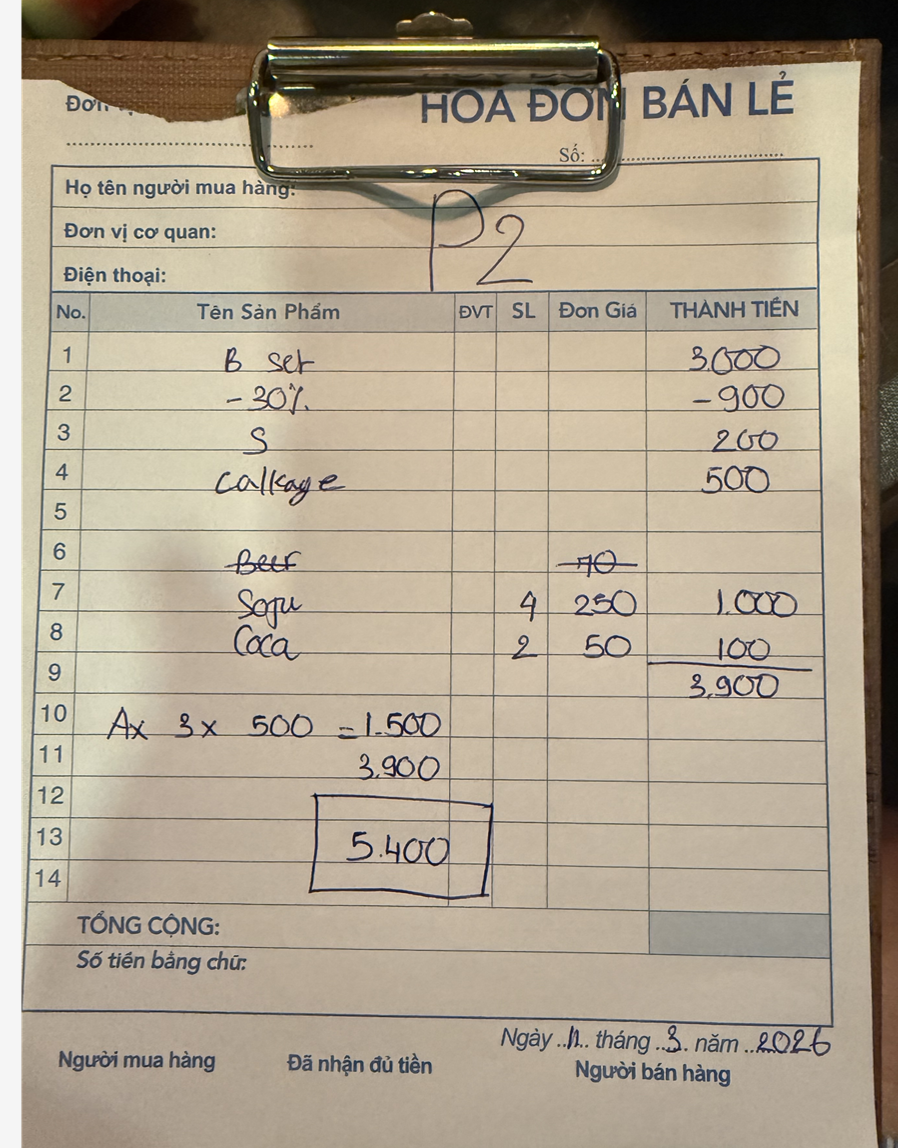 HOA ĐƠN BÁN LẺ
Số:
Họ tên người mua hàng:
Đơn vị cơ quan:
P2
Điện thoại:
No. Tên Sản Phẩm ĐVT SL Đơn Giá THÀNH TIỀN
1 B set 3.000
2 -30% -900
3 S 200
4 Calkage 500
5
6 Beer 70
7 Soju 4 250 1.000
8 Coca 2 50 100
9 3,900
10 Ax 3 x 500 = 1.500
11 3,900
12
13 5.400
14
TỔNG CỘNG:
Số tiền bằng chữ:
Ngày 11 tháng 3 năm 2026
Người mua hàng Đã nhận đủ tiền Người bán hàng